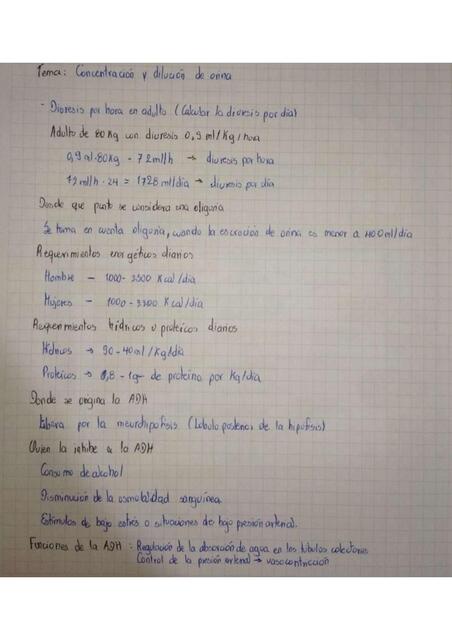 Tema: Concentración y dilución de orina
- Diuresis por hora en adulto (Calcular la diuresis por dia)
Adulto de 80 Kg con diuresis 0,9 ml/Kg/hora
0,9 ml·80Kg = 72ml/h → diuresis por hora
72 ml/h · 24 = 1728 ml/dia → diuresis por dia
Desde que punto se considera una oliguria
Se toma en cuenta oliguria, cuando la excreción de orina es menor a 400 ml/dia
Requerimientos energéticos diarios
Hombre - 1000-3500 Kcal/dia
Mujeres - 1000-3300 Kcal/dia
Requerimientos hídricos y proteicos diarios
Hídricos → 30-40ml/Kg/dia
Proteicos → 0,8 - 1gr de proteina por Kg/dia
Donde se origina la ADH
por la neurohipofisis (Lobulo posterior de la hipofisis)
Quien la inhibe a la ADH
Consumo de alcohol
Disminución de la osmolalidad sanguínea.
Estimulos de bajo estrés o situaciones de baja presión arterial.
Funciones de la ADH: Regulación de la absorción de agua en los túbulos colectores
Control de la presión arterial → vasocontricción